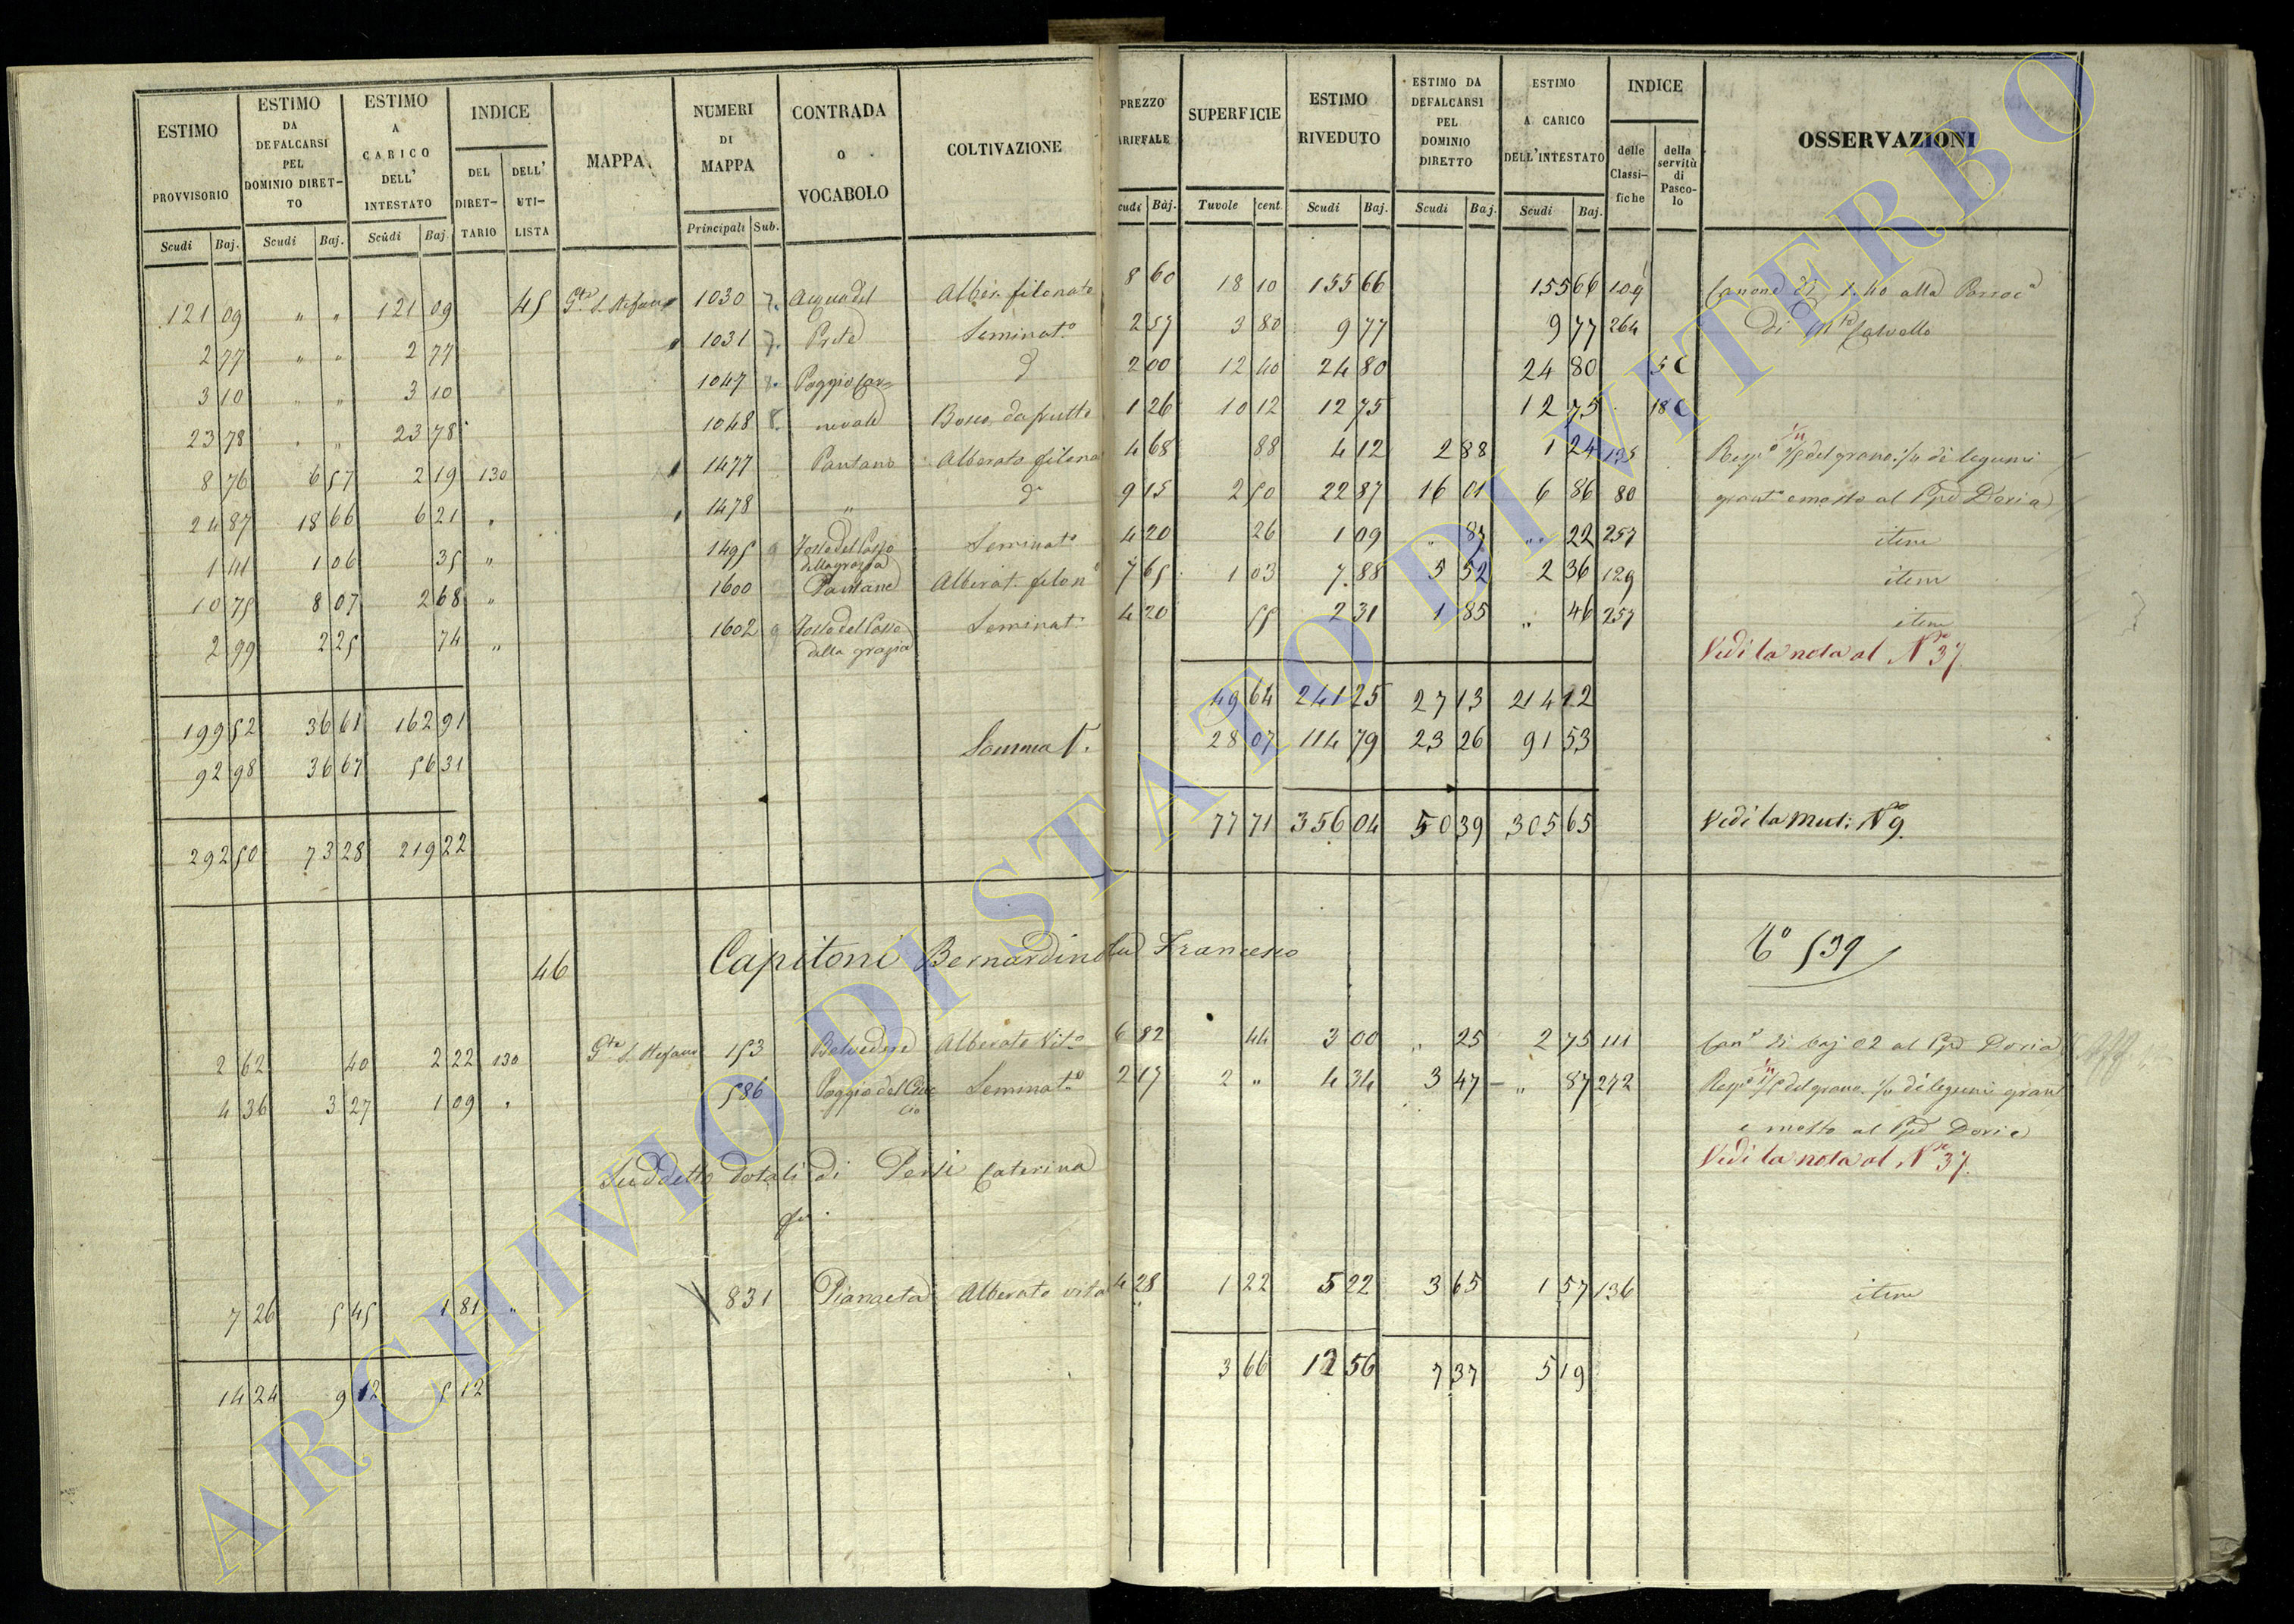 ESTIMO PROVVISORIO | ESTIMO DA DEFALCARSI PEL DOMINIO DIRETTO | ESTIMO A CARICO DELL' INTESTATO | INDICE | MAPPA | NUMERI DI MAPPA | CONTRADA O VOCABOLO | COLTIVAZIONE | PREZZO ARIFFALE | SUPERFICIE | ESTIMO RIVEDUTO | ESTIMO DA DEFALCARSI PEL DOMINIO DIRETTO | ESTIMO A CARICO DELL'INTESTATO | INDICE | OSSERVAZIONI
DEL DIRET-TARIO | DELL' UTI-LISTA | delle Classi-fiche | della servitù di Pasco-lo
Scudi | Baj. | Scudi | Baj. | Scudi | Baj | Principali | Sub. | cudi | Baj. | Tavole | cent. | Scudi | Baj. | Scudi | Baj. | Scudi | Baj.
121 09 " " 121 09 45 Gta S. Stefano 1030 Acqua del Alber. filonato 8 60 18 10 155 66 155 66 109 Canone di 1.40 alla Parroc
2 77 " " 2 77 1031 Prete Seminato 2 57 3 80 9 77 9 77 264 di
3 10 " " 3 10 1047 Poggio Car= d 2 00 12 40 24 80 24 80 5 C
23 78 " " 23 78 1048 8. nevale Bosco da frutto 1 26 10 12 12 75 12 75 18 C
8 76 6 57 2 19 130 1477 Pantano Alberato filona 4 68 88 4 12 2 88 1 24 135 1/5 del grano 1/4 di legumi
24 87 18 66 6 21 " 1478 " do 9 15 2 50 22 87 16 01 6 86 80 e mosto al Ppe Doria
1 41 1 06 35 " 1495 9 Fosso del Passo della grazia Seminato 4 20 26 1 09 " 87 " 22 257 item
10 75 8 07 2 68 " 1600 Pantane Alberat. filono 7 65 1 03 7 88 5 52 2 36 129 item
2 99 2 25 74 " 1602 9 Fosso del Passo della grazia Seminat 4 20 55 2 31 1 85 " 46 257 item
Vedi la nota al No 37.
199 52 36 61 162 91 49 64 241 25 27 13 214 12
92 98 36 67 56 31 Somma 28 07 114 79 23 26 91 53
292 50 73 28 219 22 77 71 356 04 50 39 305 65 Vedi la Mut: No 9.
46 Capitoni Bernardino fu Francesco 539
2 62 40 2 22 130 Gta S. Stefano 153 Belvedere Alberato Vito 6 82 44 3 00 " 25 2 75 111 Cane di baj 02 al Ppe Doria
4 36 3 27 1 09 " 586 Poggio del Seminato 2 17 2 " 4 34 3 47 " 87 272 1/5 del grano 1/4 di legumi
e mosto al Ppe Doria
Vedi la nota al No 37.
Suddetto dotali di Persi Caterina
7 26 5 45 1 81 " 831 Pianaeta Alberato vita 4 28 1 22 5 22 3 65 1 57 136 item
14 24 9 12 5 12 3 66 12 56 7 37 5 19
ARCHIVIO DI STATO DI VITERBO